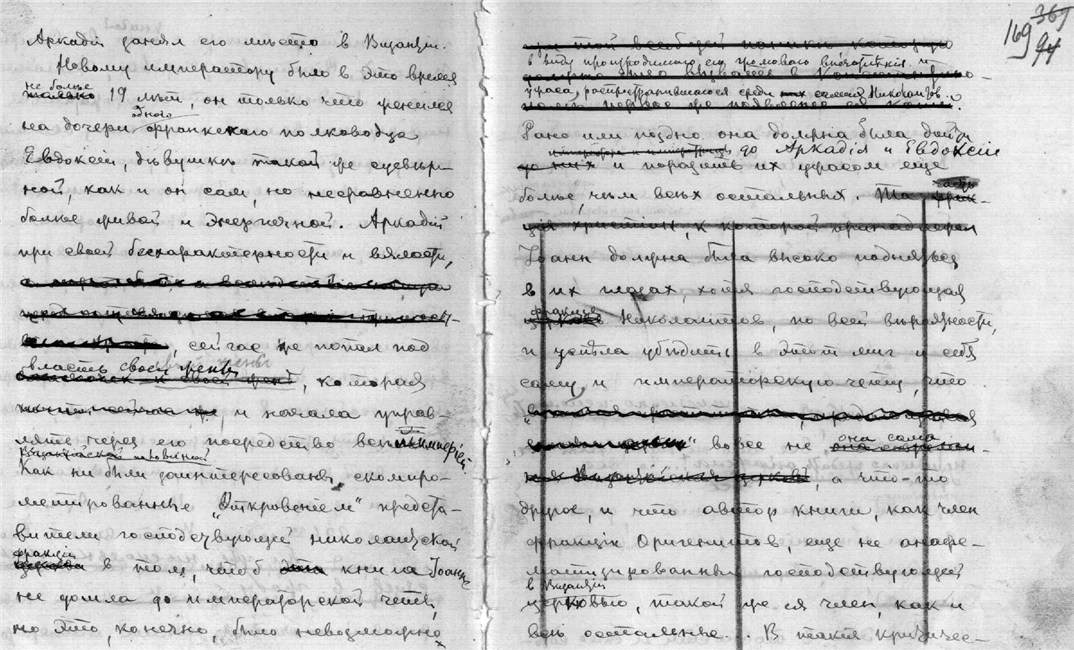 Аркадій занял его мѣсто в Византіи.
Новому императору было в это время
не болѣе
19 лѣт, он только что женился
на дочери одного франкскаго полководца
Евдоксіи, дѣвушкѣ такой же суевѣр-
ной, как и он сам, но несравненно
болѣе живой и энергичной. Аркадій
при своей безхарактерности и вялости,
сейчас же попал под
власть своей жены, которая
и начала управ-
лять через его посредство всей имперіей.
Византійской половиной
Как ни были заинтересованы скомпро-
метированные „Откровеніем" предста-
вители господствующей николаитской
фракціи
в том, чтоб книга Іоанна
не дошла до императорской четы,
но это, конечно, было невозможно
169 94
367
в виду произведеннаго ею громоваго впечатлѣнія и
ужаса, распространившагося среди самих Николаитов.
Рано или поздно она должна была дойти
до Аркадія и Евдоксіи
и поразить их ужасом еще
болѣе, чѣм всѣх остальных. Та часть
христіан, к которой принадлежал
Іоанн должна была высоко подняться
в их глазах, хотя господствующая
фракція Николаитов, по всей вѣроятности,
и успѣла убѣдить в этот миг и себя
саму и императорскую чету, что
" вовсе не она сама
, а что-то
другое, и что автор книги, как член
фракціи Оригенитов, еще не анафе-
матизированный господствующей
в Византіи
церковью, такой же ея член, как и
всѣ остальные... В такія критичес-